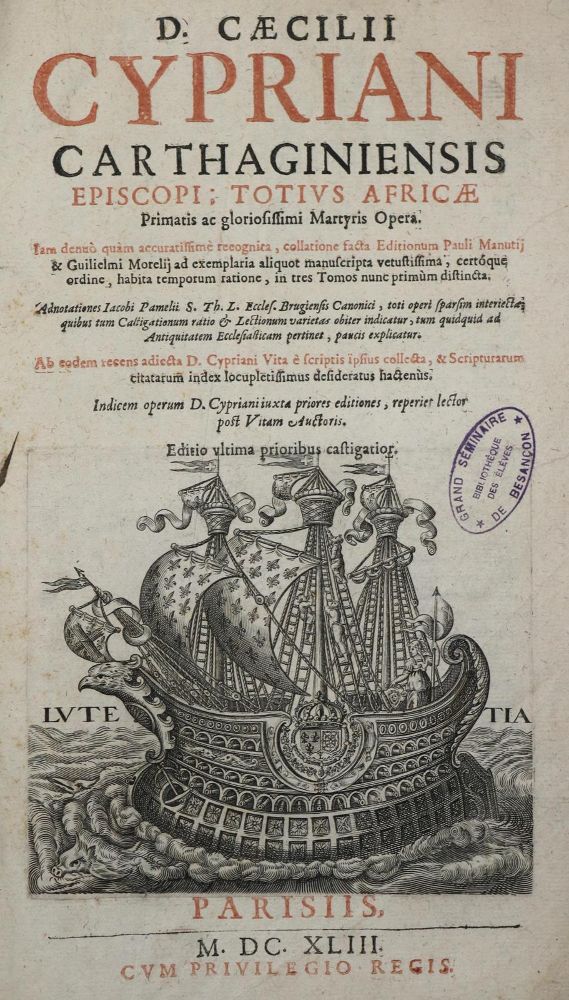 D. CÆCILII
CYPRIANI
CARTHAGINIENSIS
EPISCOPI; TOTIVS AFRICÆ
Primatis ac gloriosissimi Martyris Opera.
Iam denuò quàm accuratissimè recognita, collatione facta Editionum Pauli Manutij
& Guilielmi Morelij ad exemplaria aliquot manuscripta vetustissima, certóque
ordine, habita temporum ratione, in tres Tomos nunc primùm distincta.
Adnotationes Iacobi Pamelii S. Th. L. Eccles. Brugiensis Canonici, toti operi sparsim interiectæ;
quibus tum Castigationum ratio & Lectionum varietas obiter indicatur, tum quidquid ad
Antiquitatem Ecclesiasticam pertinet, paucis explicatur.
Ab eodem recens adiecta D. Cypriani Vita è scriptis ipsius collecta, & Scripturarum
citatarum index locupletissimus desideratus hactenùs.
Indicem operum D. Cypriani iuxta priores editiones, reperiet lector
post Vitam Auctoris.
Editio vltima prioribus castigatior.
GRAND SÉMINAIRE
BIBLIOTHÈQUE
DES ÉLÈVES
DE BESANÇON
LVTE TIA
PARISIIS,
M. DC. XLIII.
CVM PRIVILEGIO REGIS.